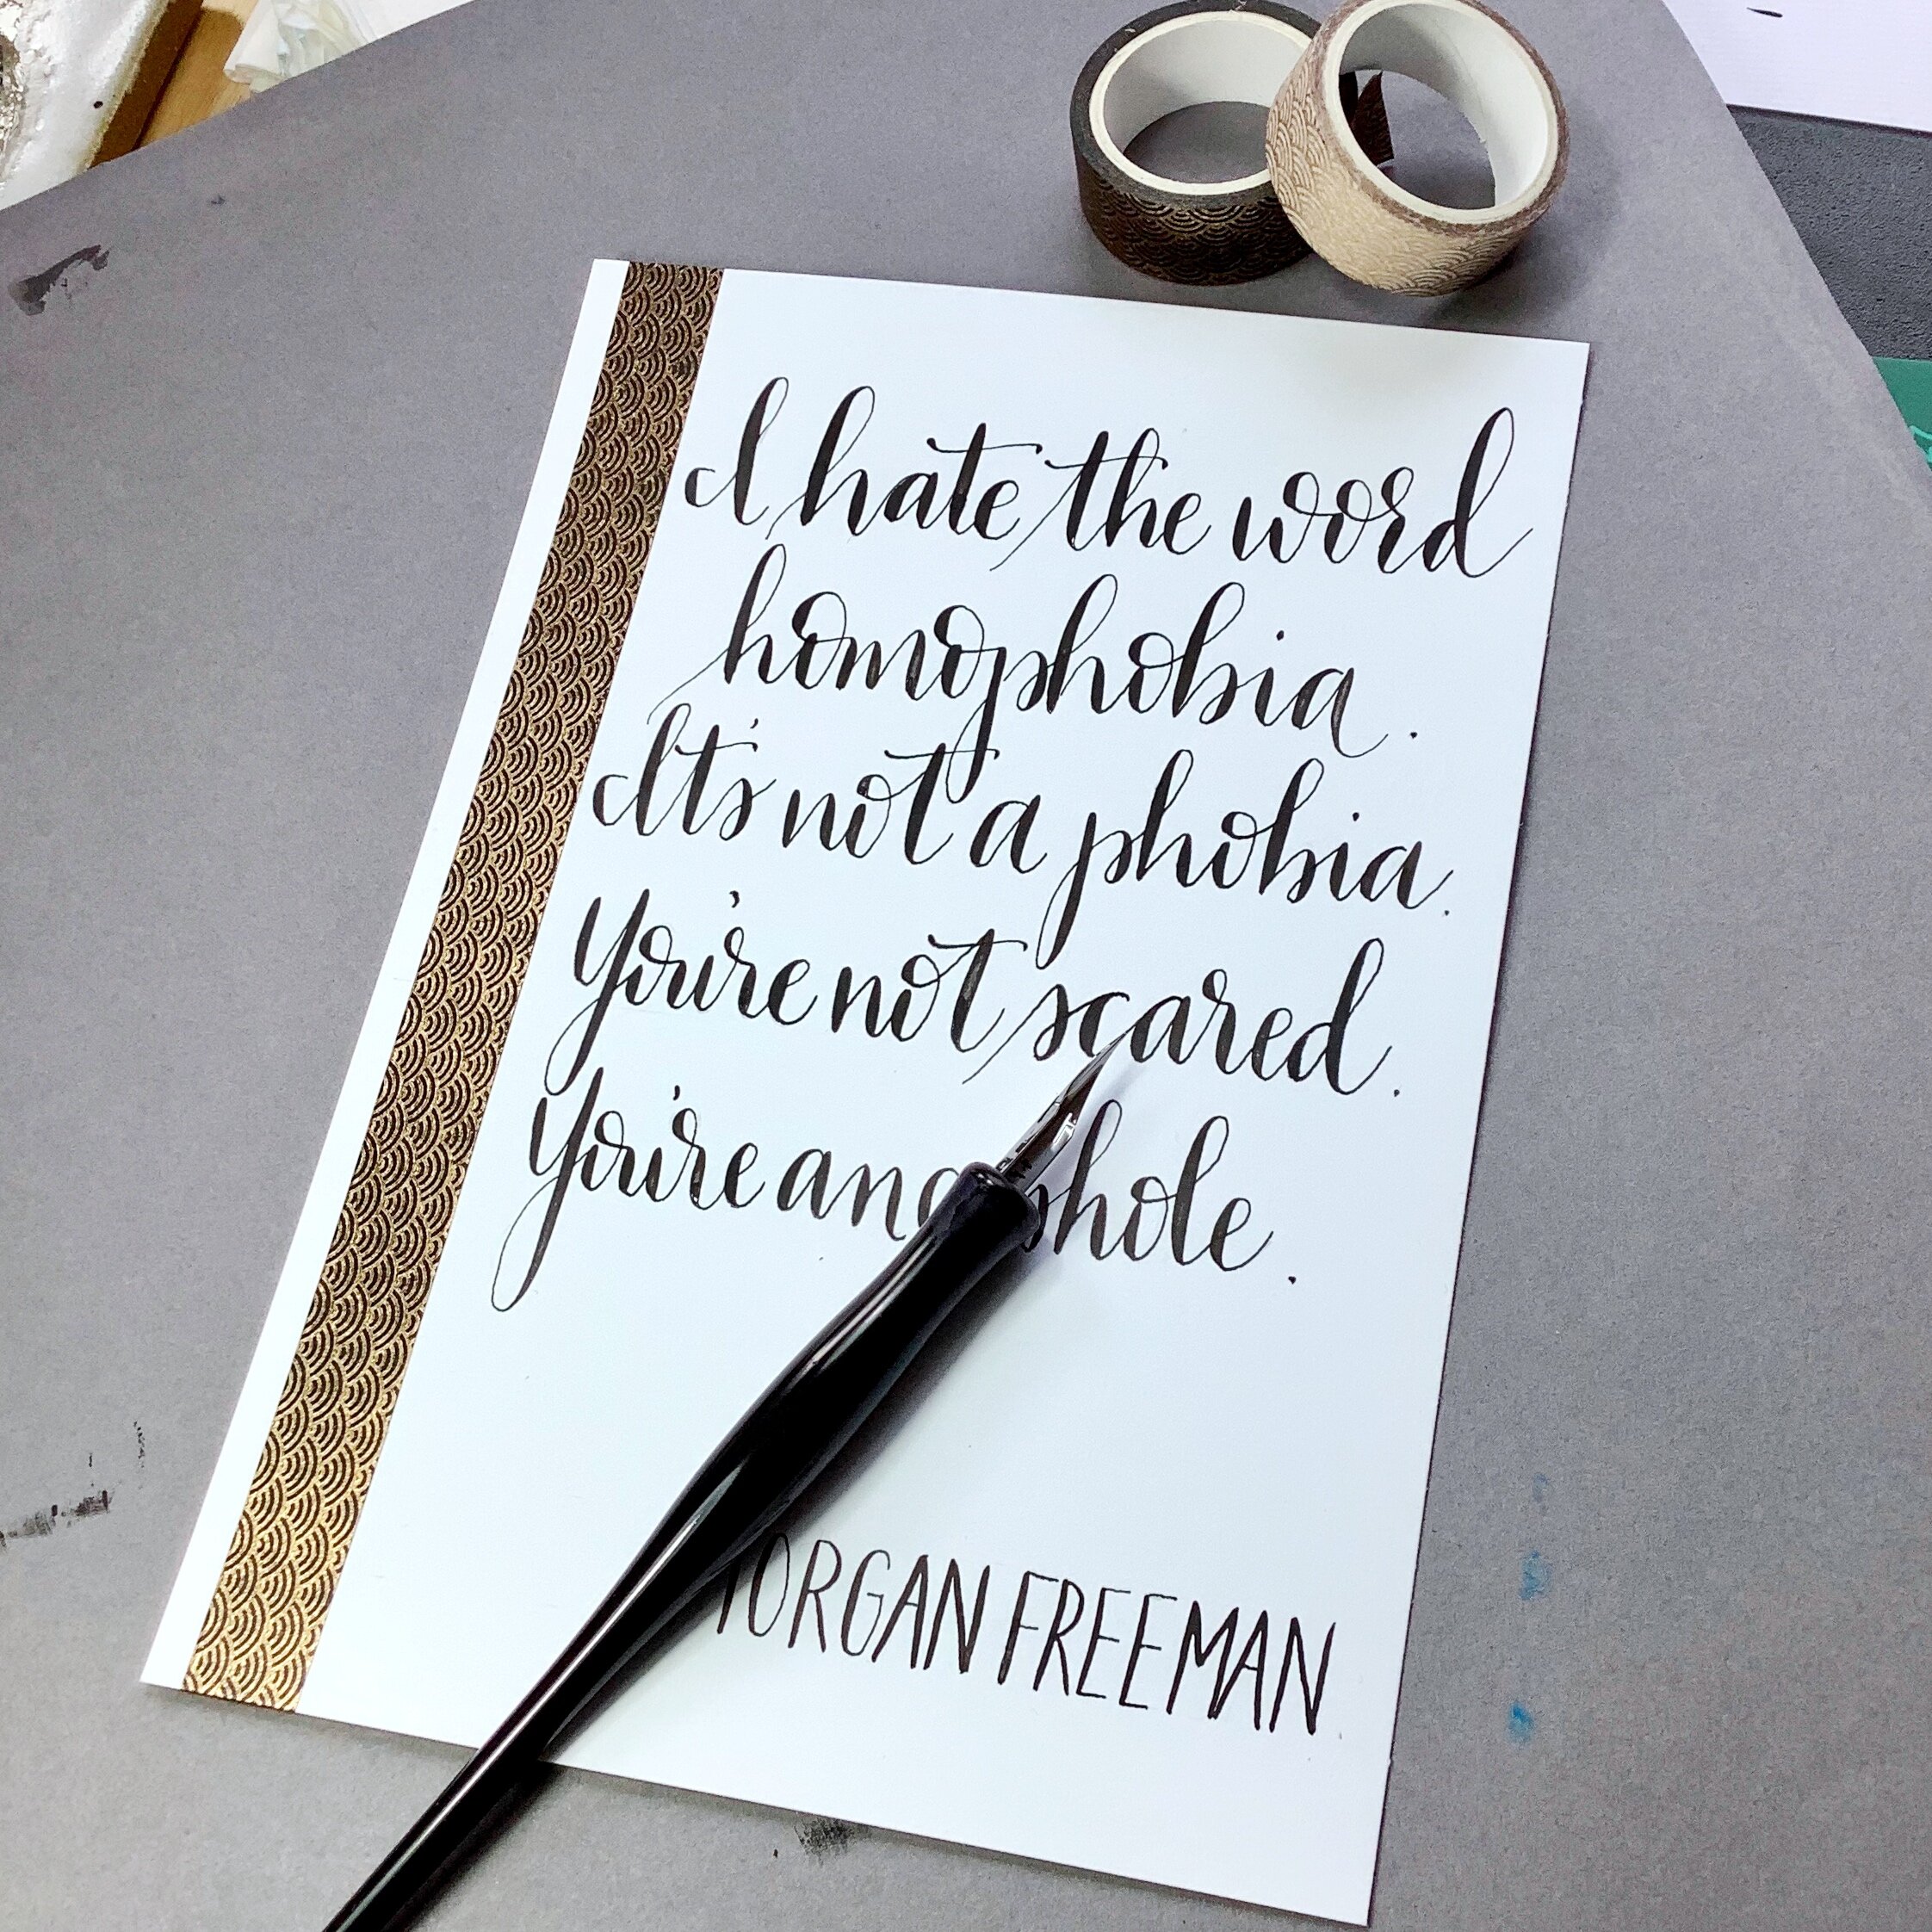 I hate the word
homophobia.
It's not a phobia.
You're not scared.
You're an hole.
MORGAN FREEMAN